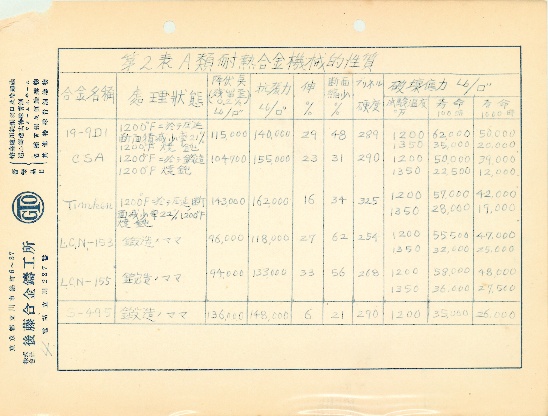 第2表 A類耐熱合金機械的性質
合金名稱 処理狀態 降伏臭 抗張力 伸 断面 ブリネル 破壊應力 Lb/□″
Lb/□″ Lb/□″ % % 硬度 試験温度 °F 寿命 100時 寿命 1000時
19-9DL 1200°Fニ於テ圧延 115,000 140,000 29 48 289 1200 62,000 50,000
断面積減小率21% 1350 35,000 20,000
1200°F焼鈍
CSA 1200°Fニ於テ鍛錬 104,700 155,000 23 31 290 1200 50,000 39,000
1200°F焼鈍 1350 22,500 12,000
Timken 1200°Fニ於テ圧延断 143,000 162,000 16 34 325 1200 57,000 42,000
面減小率22% 1200°F 1350 28,000 17,000
焼鈍
LCN-153 鍛造ノママ 96,000 118,000 27 62 254 1200 55,500 47,000
1350 32,000 25,000
LCN-155 鍛造ノママ 94,000 133,000 33 56 268 1200 58,000 48,000
1350 36,000 27,500
S-495 鍛造ノママ 136,000 148,000 6 21 290 1200 35,000 26,000
GTO
株式会社 後藤合金鑄工所
東京都立川市
電話立川287番